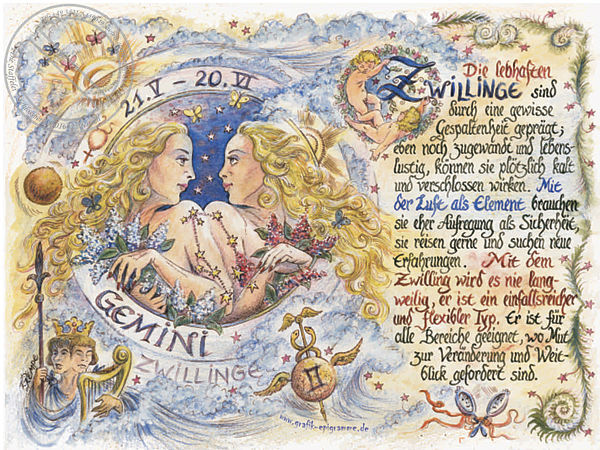 21.V - 20.VI
GEMINI
ZWILLINGE
II
www.grafik-epigramme.de
Die lebhaften
ZWILLINGE sind
durch eine gewisse
Gespaltenheit geprägt;
eben noch zugewandt und lebens-
lustig, können sie plötzlich kalt
und verschlossen wirken. Mit
der Luft als Element brauchen
sie eher Aufregung als Sicherheit,
sie reisen gerne und suchen neue
Erfahrungen. – Mit dem
Zwilling wird es nie lang-
weilig, er ist ein einfallsreicher
und flexibler Typ. Er ist für
alle Bereiche geeignet, wo Mut
zur Veränderung und Weit-
blick gefordert sind.